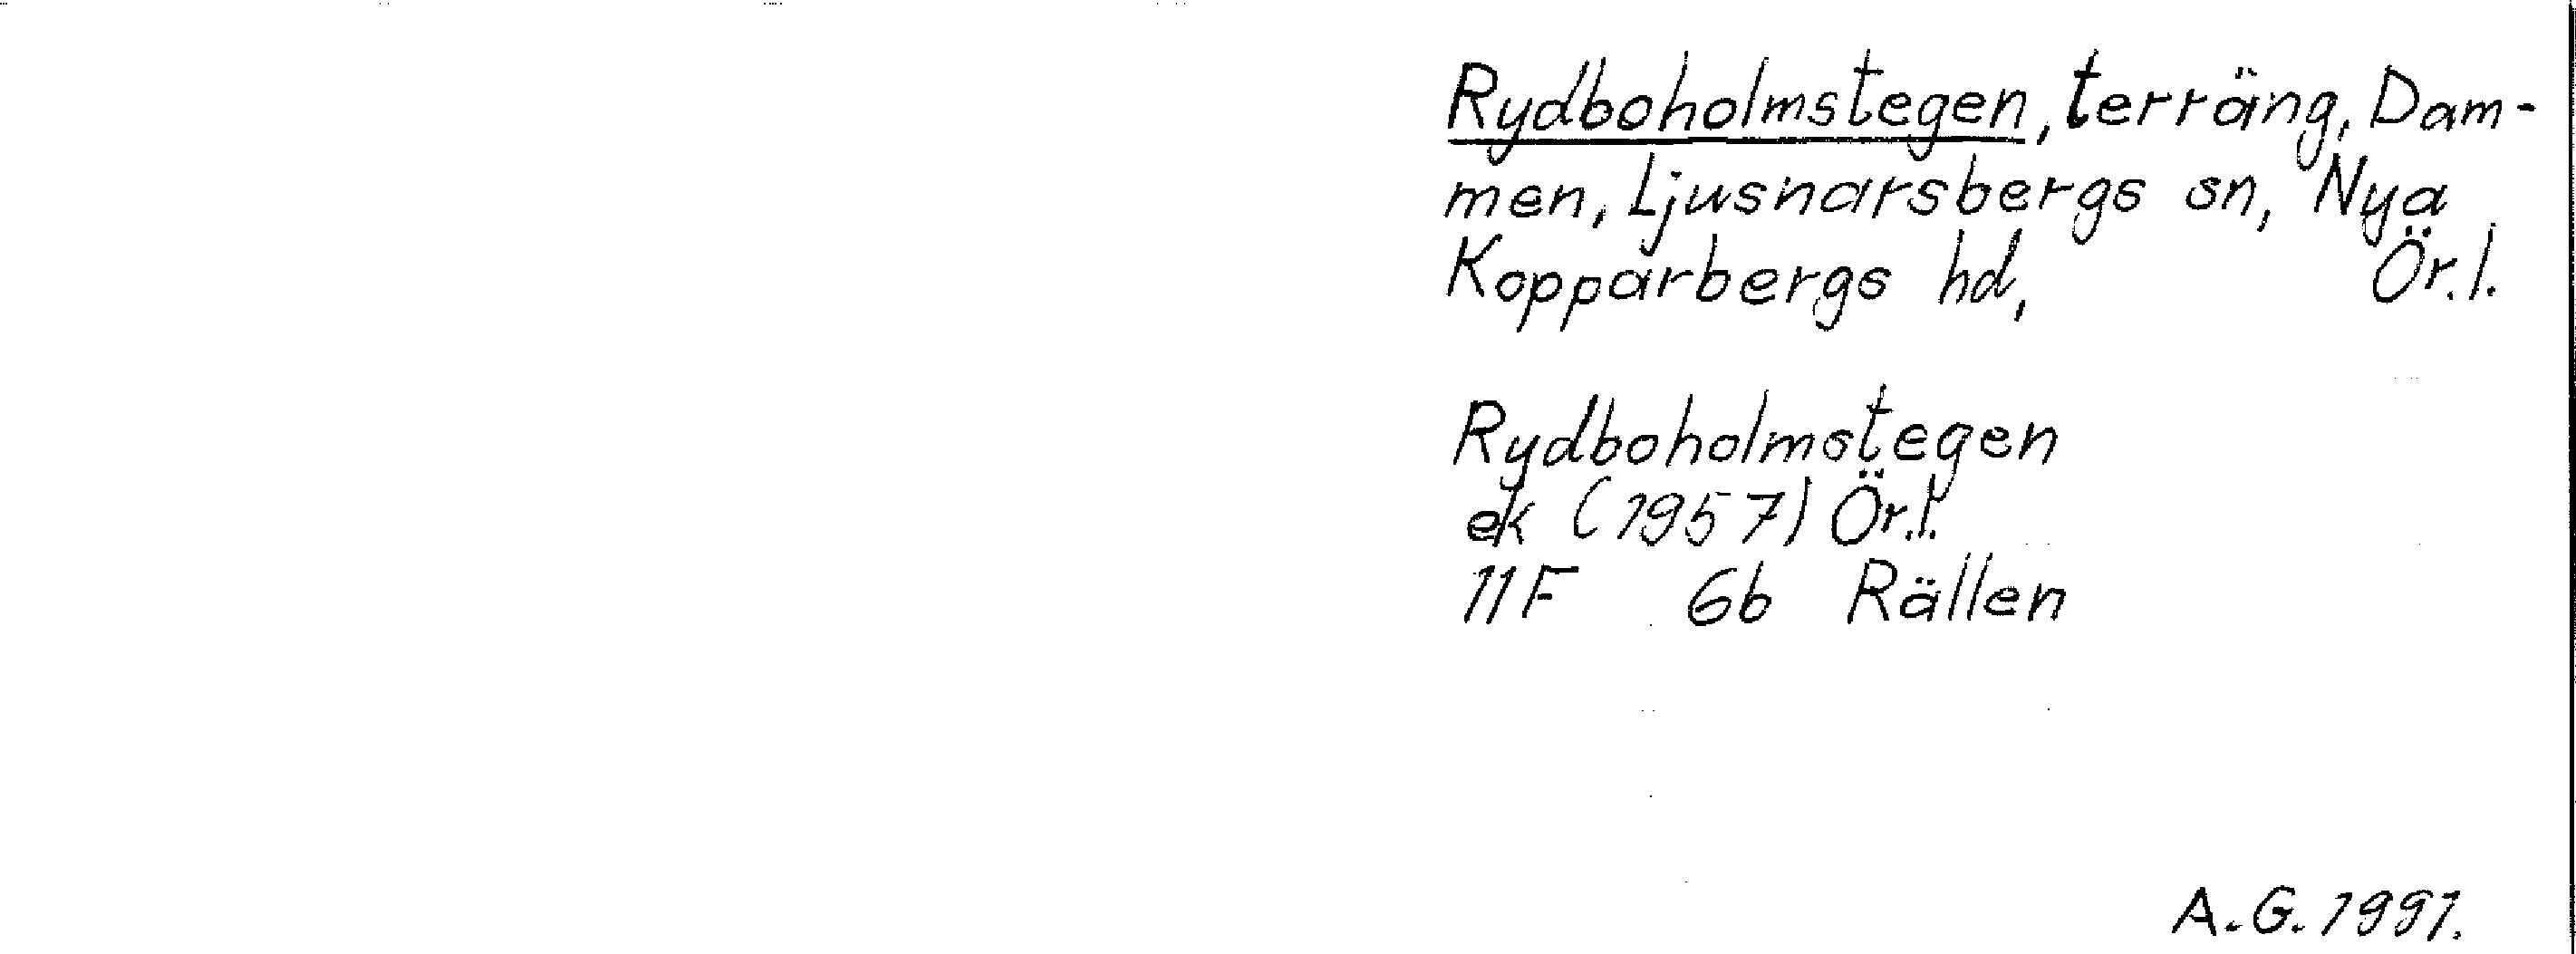 Rydboholmstegen, terräng, Dam-
men, Ljusnarsbergs sn, Nya
Kopparbergs hd, Ör.l.
Rydboholmstegen
ek (1957) Ör.l.
11F 6b Rällen
A.G. 1991.